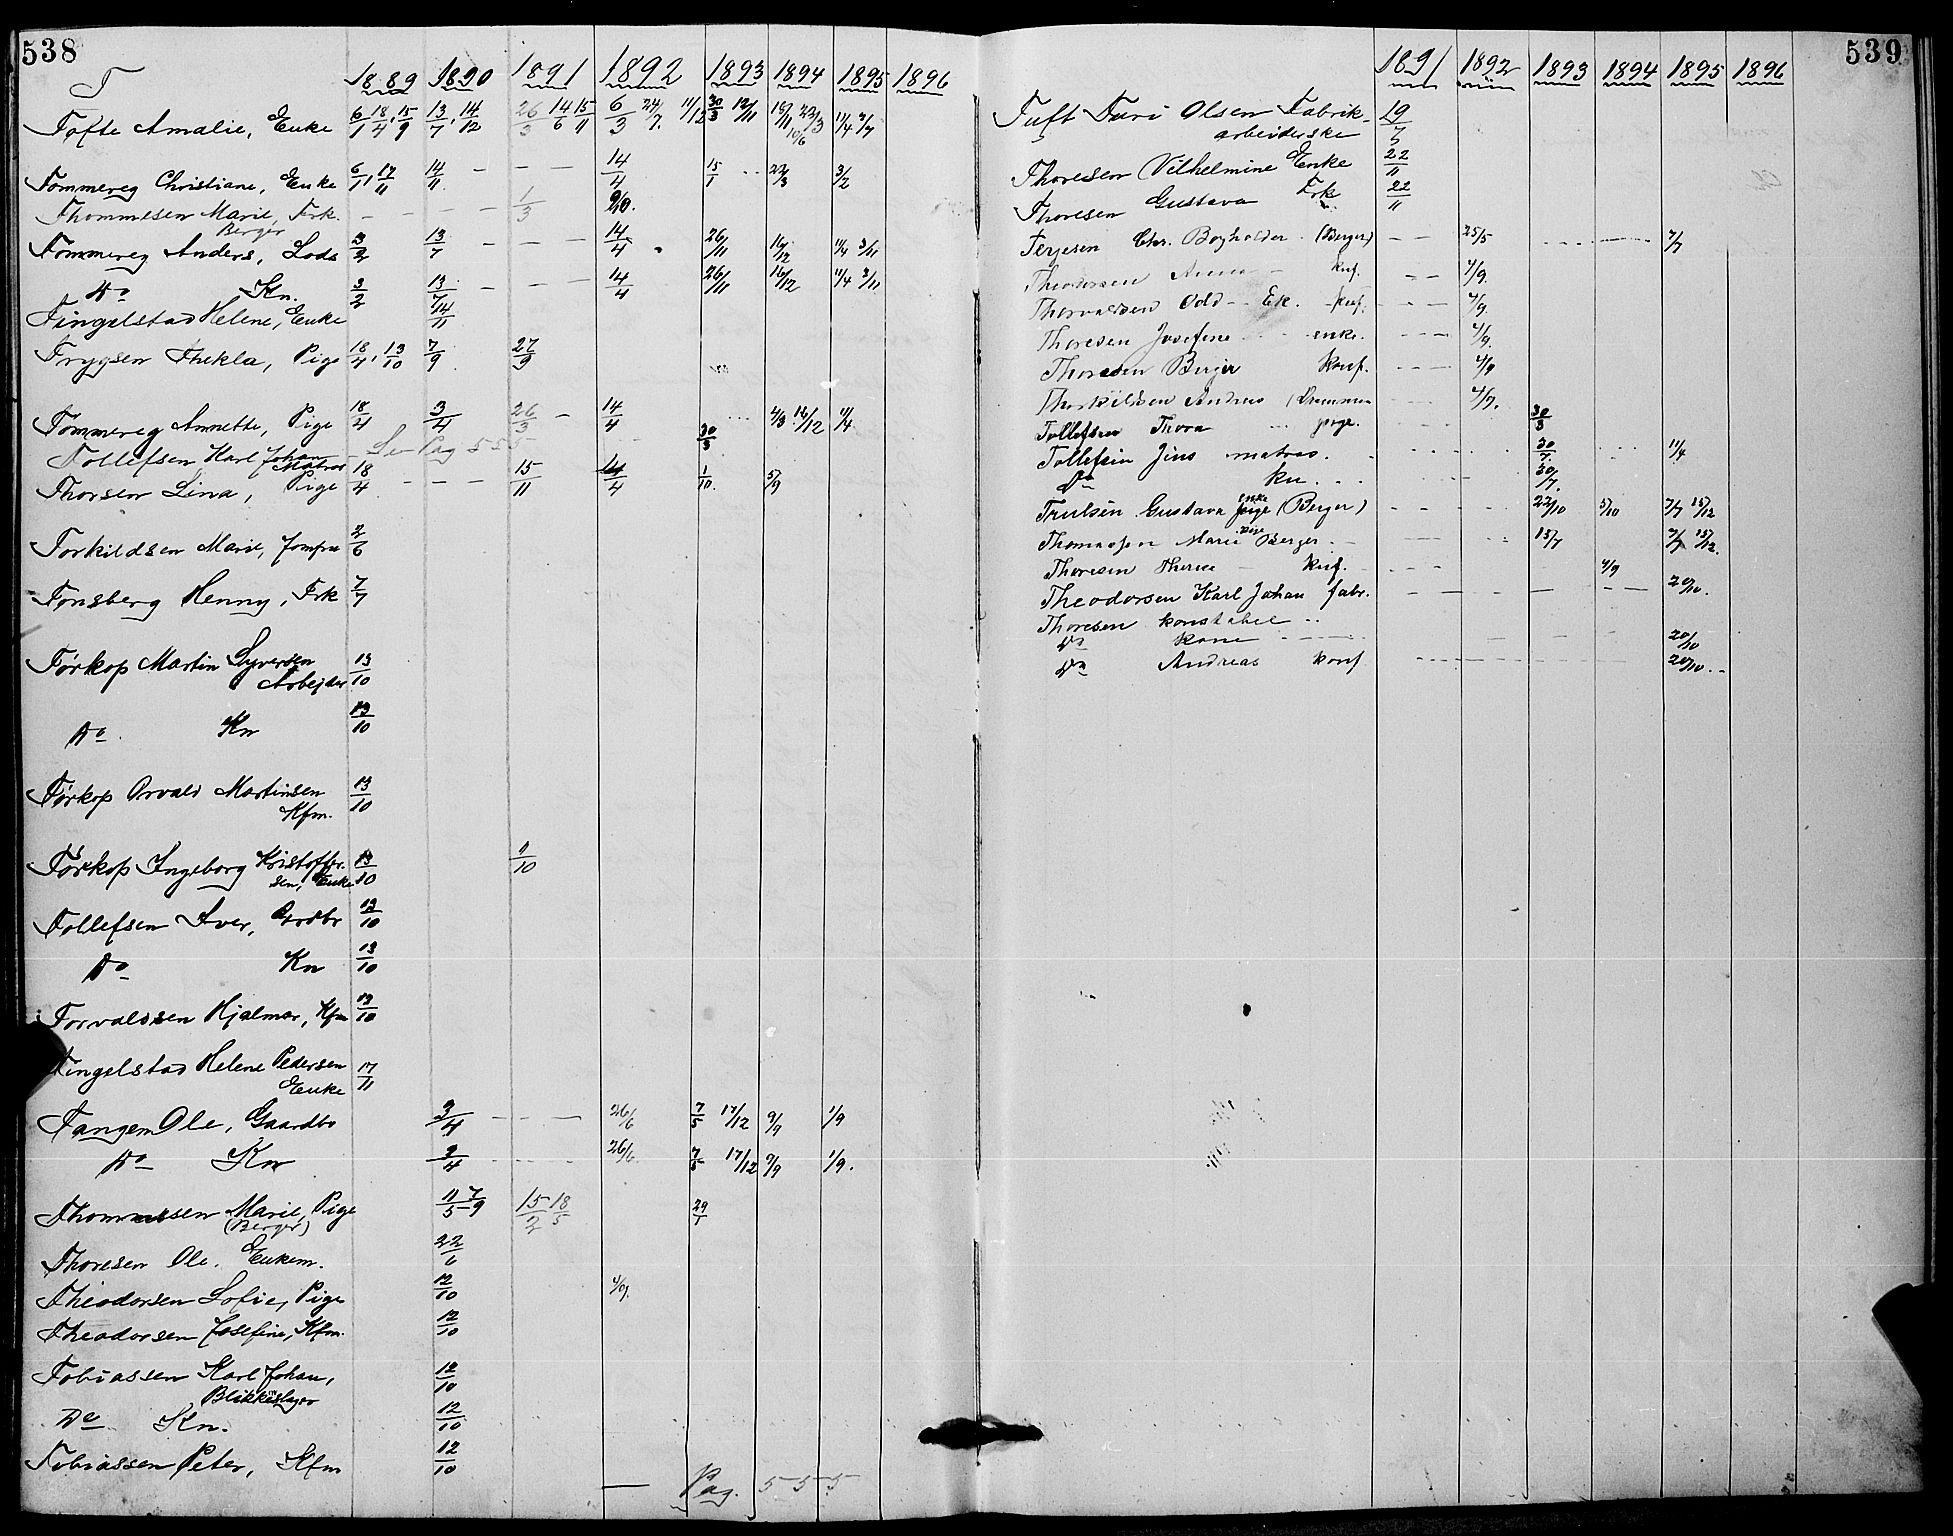 538
T 1889 1890 1891 1892 1893 1894 1895 1896
Tofte Amalie, Enke 6/1 18/4, 15/9 13/7, 14/12 26/3 14/6 15/11 6/3 24/7. 11/12 30/3 12/11 15/11 22/3 10/6 11/4 3/7
Tommereg Christiane, Enke 6/1, 17/11 14/11 - - - 14/4 15/1 22/3 3/2
Thommesen Marie, Frk. - - - - 1/3
Berger
Tommereg Anders, Lods 3/2 13/7 - - - 14/4 26/11 16/12 11/4 3/11
Do Kn. 3/2 13/7 - - - 14/4 26/11 16/12 11/4 3/11
Tingelstad Helene, Enke 14/11
Trygsen Thekla, Pige 18/4, 13/10 7/9 27/9
Tommereg Annette, Pige 18/4 3/4 26/3 - 14/4 4/3 16/12 11/4
Tollefsen Karl Johan - Se Pag 555 30/3
Matros
Thorsen Lina, Pige 18/4 - - - 15/11 14/4 1/10. 5/9
Torkildsen Marie, Jomfru 2/6
Tonsberg Henny, Frk 7/7
Torkop Martin Syversen 13/10
Arbejder
Do Kn 13/10
Torkop Orvald Martinsen 13/10
Kfm.
Torkop Ingeborg Kristoffer- 13/10 11/10
sen, Enke
Tollefsen Iver, Grdbr 13/10
Do Kn 13/10
Torvaldsen Hjalmar, Kfm 13/10
Tingelstad Helene Pedersen 17/11
Enke
Tangem Ole, Gaardbr 3/4 - - - 26/6 7/5 17/12 9/9 1/9
Do Kn 3/4 - - - 26/6. 7/5 17/12 9/9 1/9.
Thommesen Marie, Pige 11/5 7/9 15/2 18/5 29/1
(Berger)
Thoresen Ole. Enkem. 22/6
Theodorsen Sofie, Pige 12/10 4/9.
Theodorsen Josefine, Kfm. 12/10
Tobiassen Karl Johan, 12/10
Blikkenslager
Do Kn. 12/10
Tobiassen Peter, Kfm 12/10
— Pag. 555
539
1891 1892 1893 1894 1895 1896
Tuft Turi Olsen Fabrik- 19/7
arbeiderske
Thoresen Vilhelmine Enke 22/11
Thoresen Gustava Frk 22/11
Terjesen Chr. Bogholder (Berger) - - 25/5 7/7
Theodorsen Anna - Knf. - - 4/9.
Thorvaldsen Odd - Ek. knf. - - 4/9.
Thoresen Josefine enke. - - - 4/9.
Thoresen Berger Konf. - - - 4/9
Thorkildsen Andrea (Drammen - - - 4/9.
Tollefsen Thora pige. - - 30/3
Tollefsen Jens matros. 30/7. 11/4
Do kn. 30/7.
enke
Trulsen Gustava pige (Berger) - - - 22/10 5/10 7/7 15/12
Thomassen Marie Berger. - - - 15/7 7/7 15/12.
Thoresen Therese - Knf. - - - 4/9
Theodorsen Karl Johan fabr. - - - - - 20/10.
Thoresen konstabel
Do kone - - - 20/10
Do Andreas konf - - - 20/10.